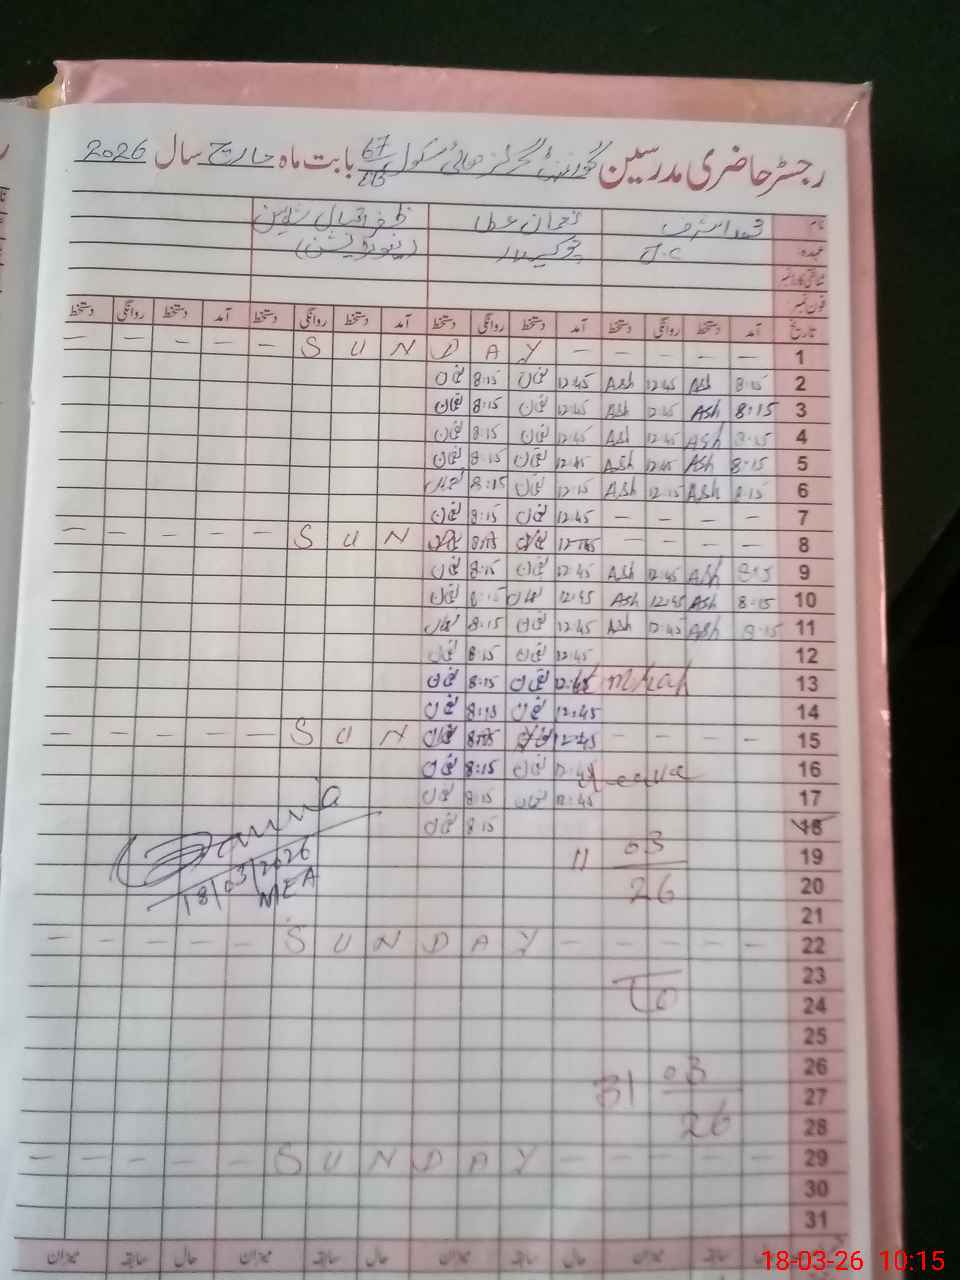 رجسٹر حاضری مدرسین گورنمنٹ گرلز ہائی سکول 67 بابت ماہ مارچ سال 2026
نام محمد اشرف نعمان عطا ظفر اقبال
عہدہ J.C چوکیدار
شناختی کارڈ نمبر
فون نمبر
تاریخ آمد دستخط روانگی دستخط آمد دستخط روانگی دستخط آمد دستخط روانگی دستخط آمد دستخط روانگی دستخط
1 - - - - - S U N D A Y - - - - - -
2 8:15 Ash 12:45 Ash 12:45 نعمان 8:15 نعمان
3 8:15 Ash 12:45 Ash 12:45 نعمان 8:15 نعمان
4 8:15 Ash 12:45 Ash 12:45 نعمان 8:15 نعمان
5 8:15 Ash 12:45 Ash 12:45 نعمان 8:15 نعمان
6 8:15 Ash 12:15 Ash 12:15 نعمان 8:15 نعمان
7 - - - - 12:45 نعمان 8:15 نعمان
8 - - - - 12:45 نعمان 8:15 نعمان S U N - - - - - -
9 8:15 Ash 12:45 Ash 12:45 نعمان 8:15 نعمان
10 8:15 Ash 12:45 Ash 12:45 نعمان 8:15 نعمان
11 8:15 Ash 12:45 Ash 12:45 نعمان 8:15 نعمان
12 12:45 نعمان 8:15 نعمان
13 Umrah 12:45 نعمان 8:15 نعمان
14 12:45 نعمان 8:15 نعمان
15 - - - - 12:45 نعمان 8:15 نعمان S U N - - - - - -
16 Leave 12:45 نعمان 8:15 نعمان
17 12:45 نعمان 8:15 نعمان
18 8:15 نعمان
19 11 03
20 26
18/03/2026
MEA
21
22 - - - - - S U N D A Y - - - - - -
23
24 To
25
26 03
27 31
28 26
29 - - - - - S U N D A Y - - - - - -
30
31
حال سابقہ میزان حال سابقہ میزان حال سابقہ میزان
18-03-26 10:15